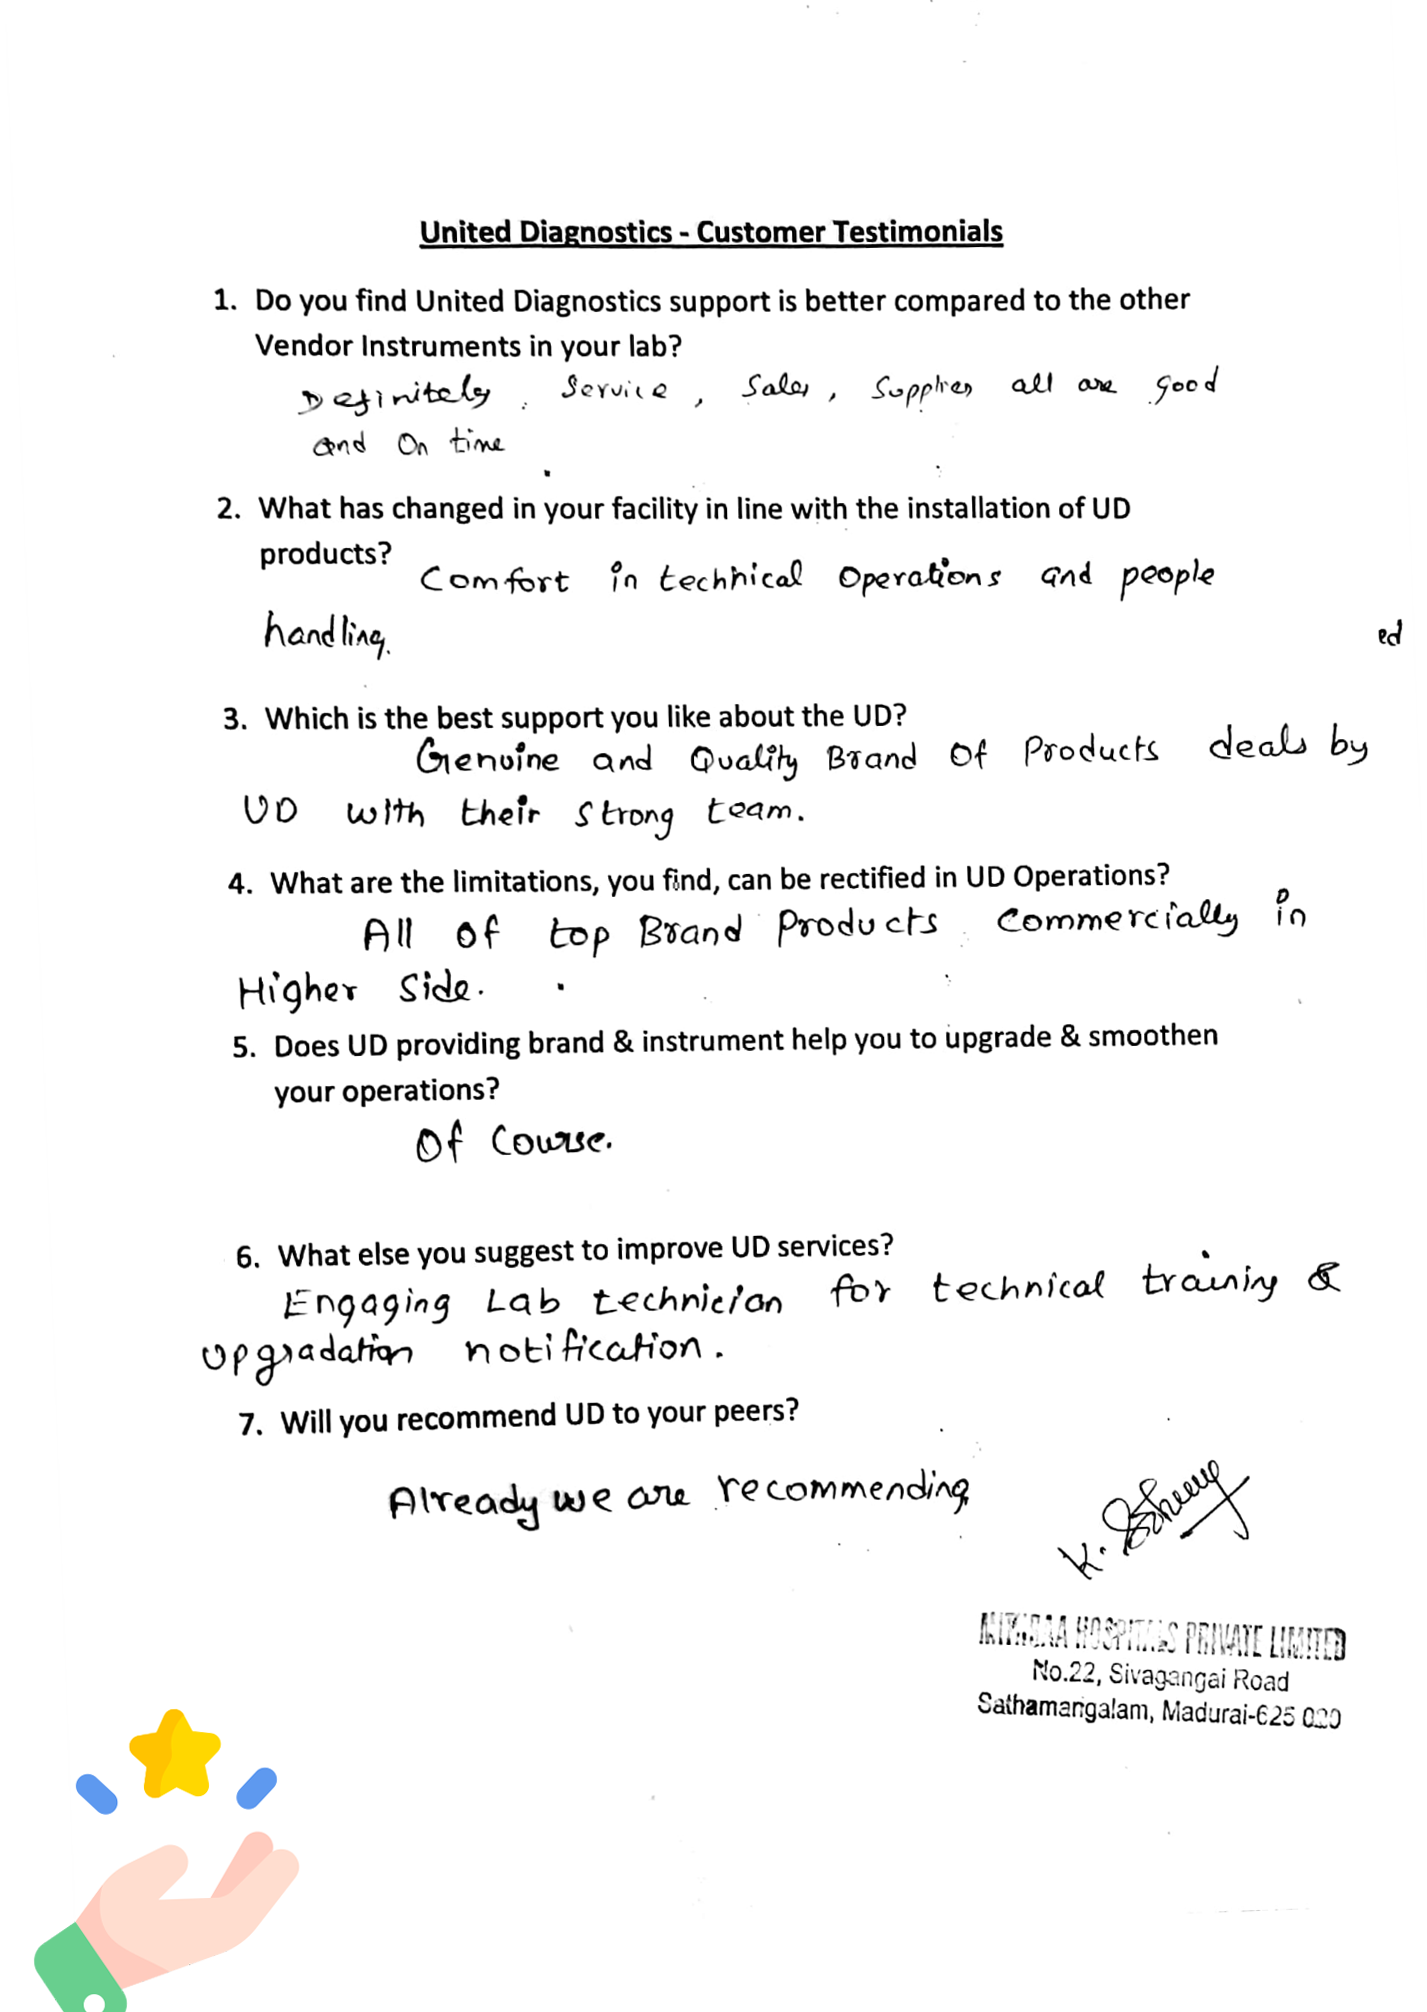 United Diagnostics - Customer Testimonials
1. Do you find United Diagnostics support is better compared to the other
Vendor Instruments in your lab?
Definitely. Service, Sales, Supplies all are good
and On time
2. What has changed in your facility in line with the installation of UD
products?
Comfort in technical Operations and people
handling.
ed
3. Which is the best support you like about the UD?
Genuine and Quality Brand Of Products deals by
UD with their strong team.
4. What are the limitations, you find, can be rectified in UD Operations?
All of top Brand Products Commercially in
Higher Side.
5. Does UD providing brand & instrument help you to upgrade & smoothen
your operations?
Of Course.
6. What else you suggest to improve UD services?
Engaging Lab technician for technical training &
Upgradation notification.
7. Will you recommend UD to your peers?
Already we are recommending
K.
HOSPITALS PRIVATE LIMITED
No.22, Sivagangai Road
Sathamangalam, Madurai-625 020